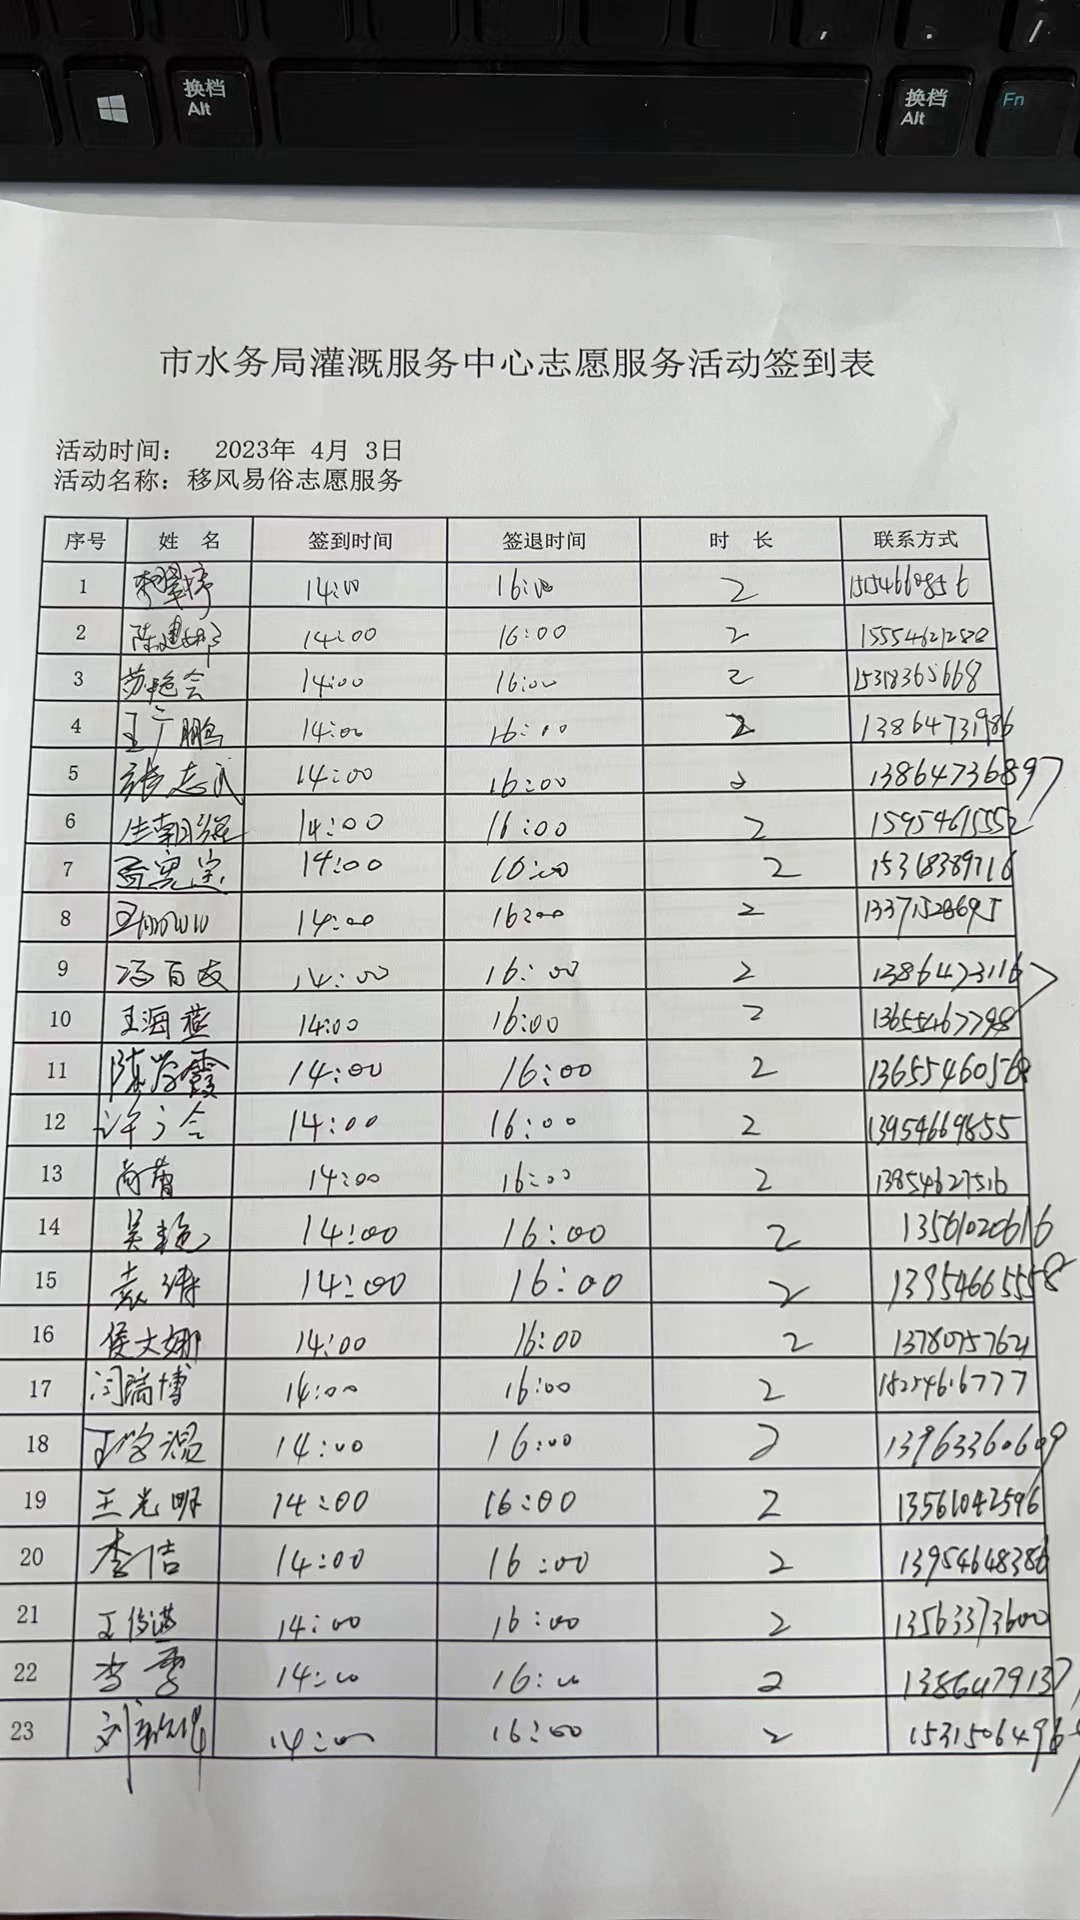 , . /
换档 Alt 换档 Alt Fn
市水务局灌溉服务中心志愿服务活动签到表
活动时间： 2023年 4月 3日
活动名称：移风易俗志愿服务
序号 姓 名 签到时间 签退时间 时 长 联系方式
1 14:00 16:00 2 15154660856
2 陈建娜 14:00 16:00 2 15554621288
3 苏艳会 14:00 16:00 2 15318365668
4 王广鹏 14:00 16:00 2 13864731986
5 张志武 14:00 16:00 2 13864736897
6 生朝强 14:00 16:00 2 15954615552
7 14:00 16:00 2 15318389716
8 14:00 16:00 2 13371528695
9 冯百友 14:00 16:00 2
10 王海燕 14:00 16:00 2 13655467798
11 陈学霞 14:00 16:00 2 13655460568
12 许会 14:00 16:00 2 13954669855
13 尚蕾 14:00 16:00 2 13854627516
14 吴艳 14:00 16:00 2 13561020616
15 袁涛 14:00 16:00 2 13954665558
16 侯文娜 14:00 16:00 2 13780757621
17 闫瑞博 14:00 16:00 2 18254616777
18 王学温 14:00 16:00 2 13963360609
19 王光明 14:00 16:00 2 13561042596
20 李洁 14:00 16:00 2 13954648386
21 14:00 16:00 2 13563373600
22 李雪 14:00 16:00 2 13864791371
23 14:00 16:00 2